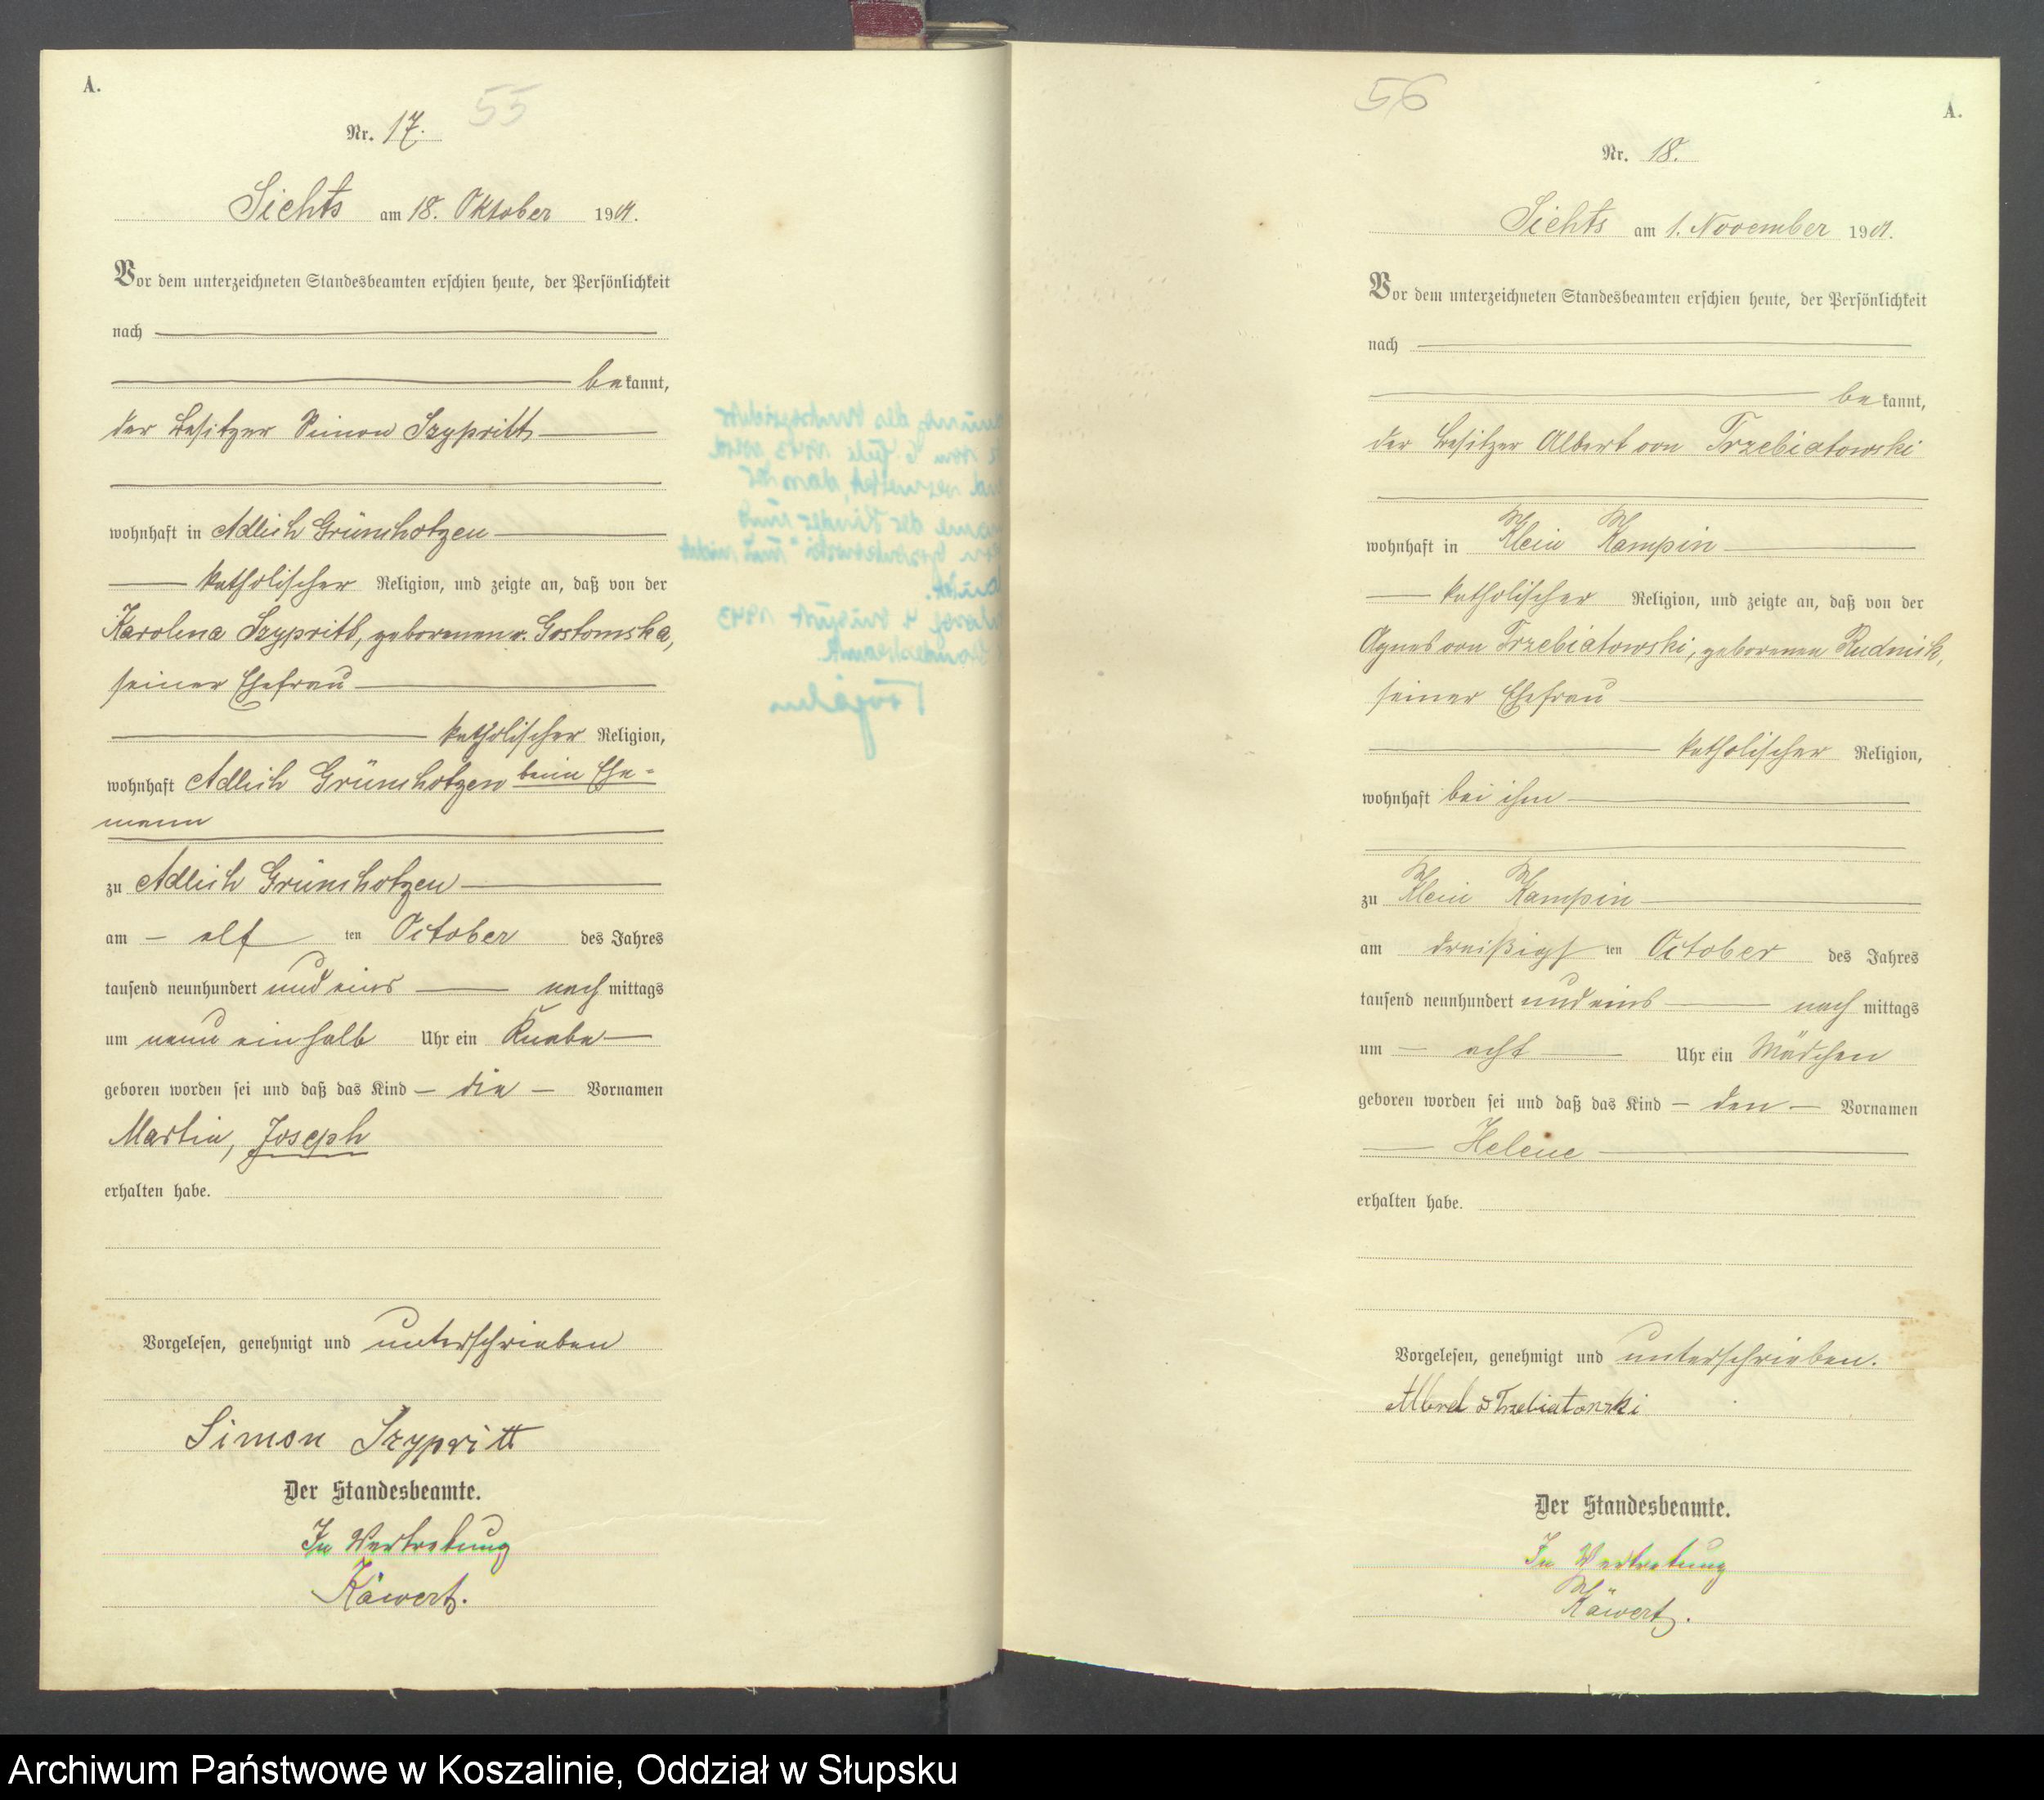 A.
55
Nr. 17.
Sichts am 18. Oktober 1901.
Vor dem unterzeichneten Standesbeamten erschien heute, der Persönlichkeit
nach
bekannt,
der Besitzer Simon Szypritt
wohnhaft in Adlich Grünchotzen
katholischer Religion, und zeigte an, daß von der
Karolina Szypritt, geborenen v. Gostomska,
seiner Ehefrau
katholischer Religion,
wohnhaft Adlich Grünchotzen beim Ehe-
mann
zu Adlich Grünchotzen
am elf ten October des Jahres
tausend neunhundert und eins nachmittags
um neun einhalb Uhr ein Knabe
geboren worden sei und daß das Kind die Vornamen
Martin, Joseph
erhalten habe.
Vorgelesen, genehmigt und unterschrieben
Simon Szypritt
Der Standesbeamte.
In Vertretung
Käwert.
56
A.
Nr. 18.
Sichts am 1. November 1901.
Vor dem unterzeichneten Standesbeamten erschien heute, der Persönlichkeit
nach
bekannt,
der Besitzer Albert von Trzebiatowski
wohnhaft in Klein Kampin
katholischer Religion, und zeigte an, daß von der
Agnes von Trzebiatowski, geborenen Rudnik,
seiner Ehefrau
katholischer Religion,
wohnhaft bei ihm
zu Klein Kampin
am dreißigsten October des Jahres
tausend neunhundert und eins nachmittags
um acht Uhr ein Mädchen
geboren worden sei und daß das Kind den Vornamen
Helene
erhalten habe.
Vorgelesen, genehmigt und unterschrieben.
Albert v Trzebiatowski
Der Standesbeamte.
In Vertretung
Käwert.
Archiwum Państwowe w Koszalinie, Oddział w Słupsku